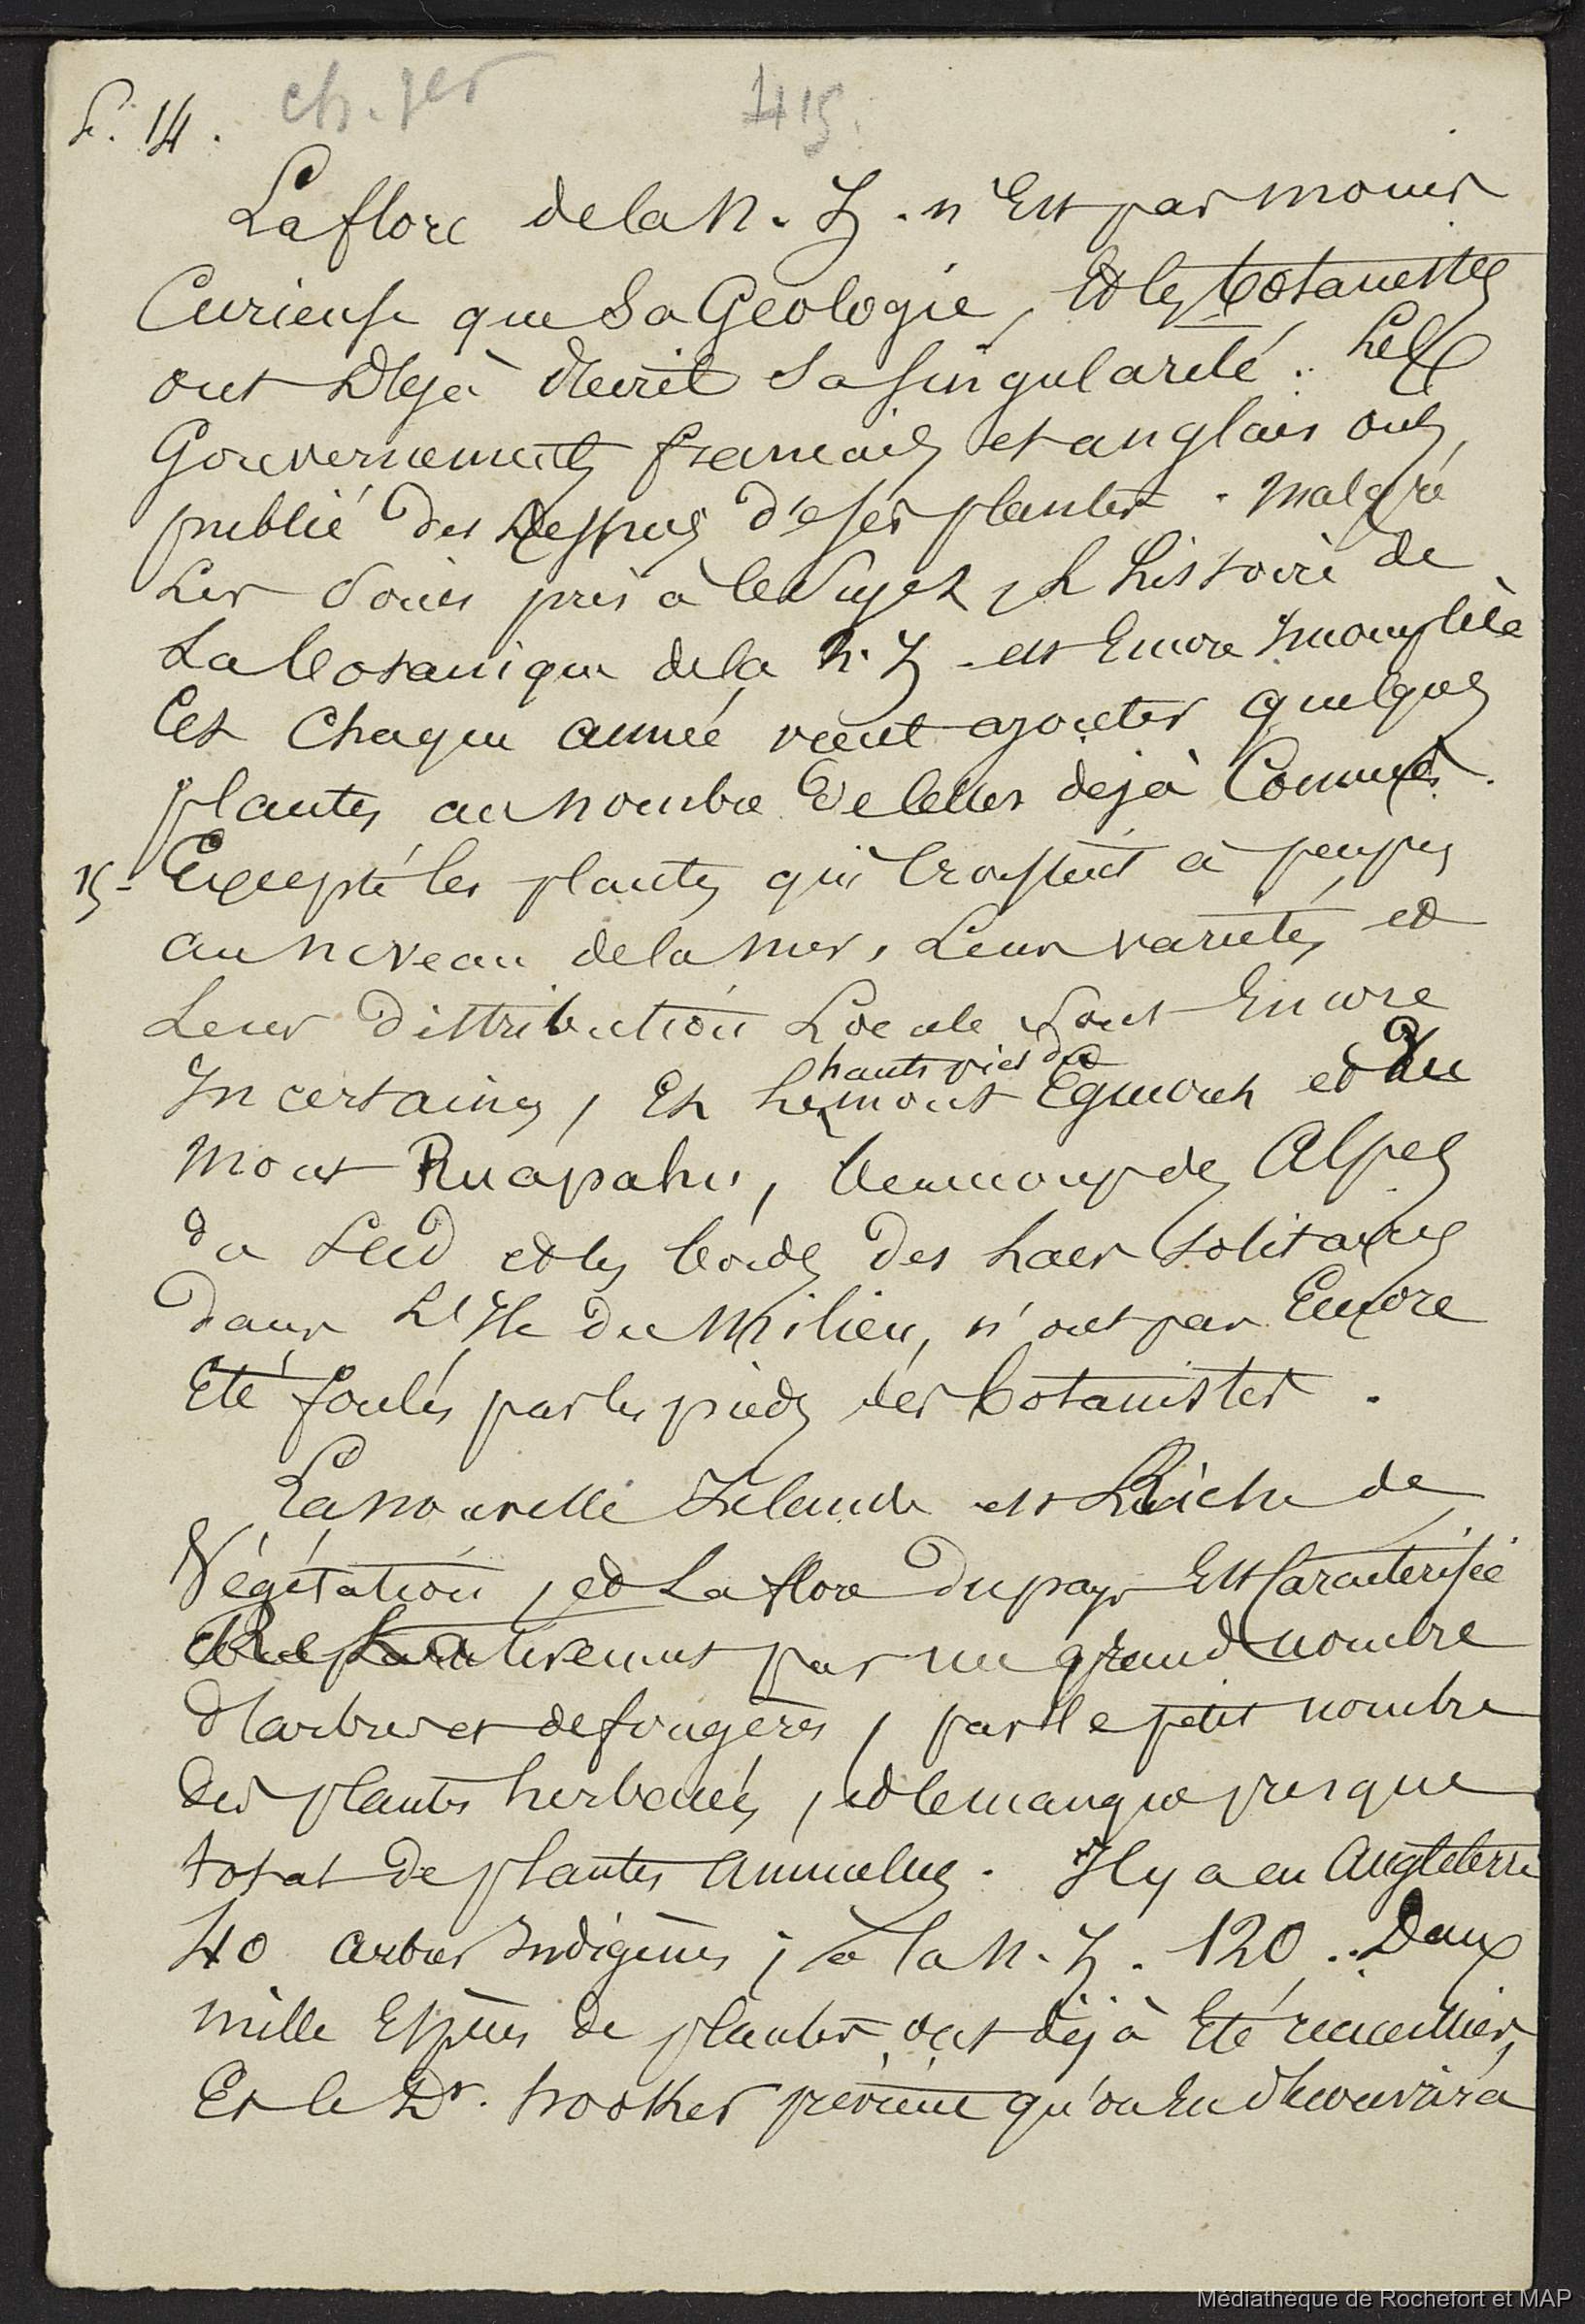 f. 14. ch. 1er 415.
La flore de la N. Z. n'Est pas moins
Curieuse que Sa Géologie, Et les botanistes
ont Déjà décrit Sa singularité. Les
Gouvernements français et anglais ont
publié des de ses plantes. Malgré
Les Soins pris à ce Sujet, L'histoire de
La botanique de la N. Z. est Encore Incomplète
Et Chaque année vient ajouter quelques
plantes au nombre de celles déjà Connues.
15 - Excepté les plantes qui Croissent à peu près
au niveau de la mer, Leur variétés et
Leur Distribution Locale Sont Encore
Incertaines, Et Les
hauts pics du
mont Egmont et Du
Mont Ruapahu, beaucoup des Alpes
du Sud et les bords des Lacs Solitaires
Dans L'Ile du Milieu, n'ont pas Encore
Eté foulés par les pieds des botanistes.
La nouvelle Zelande est Riche de
Végétation, et La flore du pays Est Caractérisée
par un grand nombre
d'arbres et de fougères, par le petit nombre
des plantes herbacées, et le manque presque
total de plantes annuelles. Il y a en Angleterre
40 arbres Indigènes; à la N. Z. 120. Deux
mille Espèces de plantes ont déjà Eté recueillies,
Et le Dr. Hooker qu'on En découvrira
Médiathèque de Rochefort et MAP